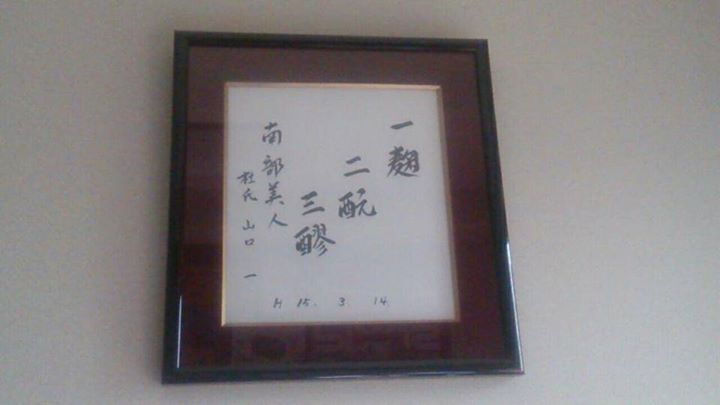 一麹
二酛
三醪
南部美人
杜氏 山口 一
H 15. 3. 14.